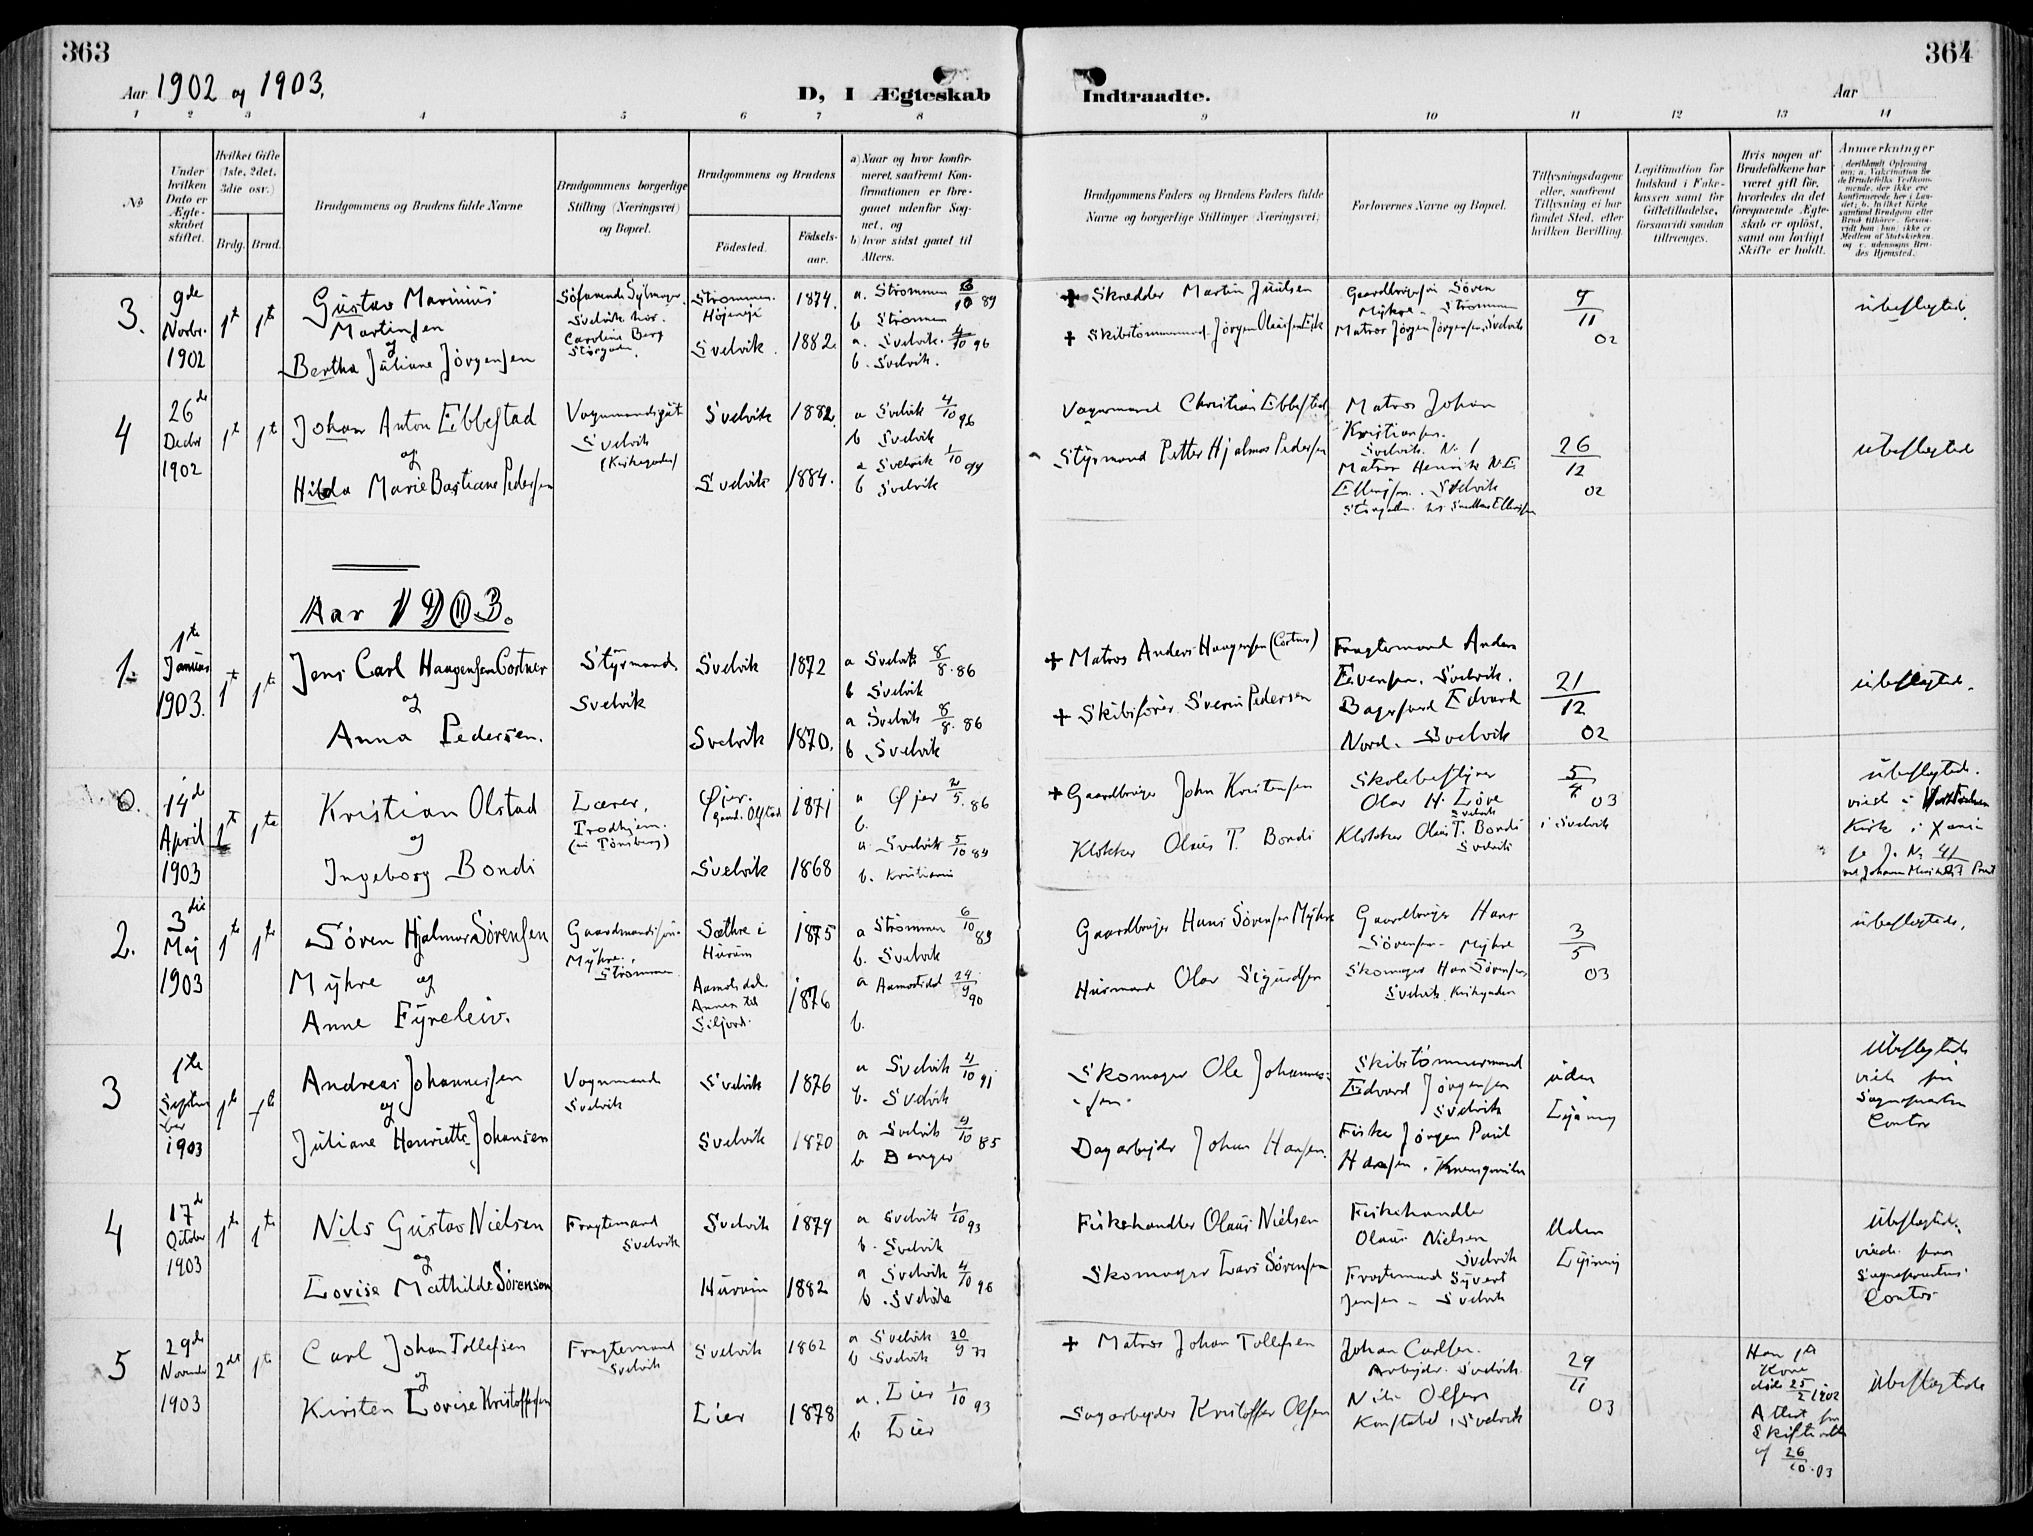 363
Aar 1902 og 1903.
D, I Ægteskab
Indtraadte.
364
Aar
1 2 3 4 5 6 7 8 9 10 11 12 13 14
No
Under hvilken Dato er Ægteskabet stiftet.
Hvilket Gifte (1ste, 2det, 3die osv.)
Brdg. Brud.
Brudgommens og Brudens fulde Navne
Brudgommens borgerlige Stilling (Næringsvei) og Bopæl.
Brudgommens og Brudens
Fødested.
Fødselsaar.
a) Naar og hvor konfirmeret, saafremt Konfirmationen er foregaaet udenfor Sognet, og
b) hvor sidst gaaet til Alters.
Brudgommens Faders og Brudens Faders fulde Navne og borgerlige Stillinger (Næringsvei)
Forlovernes Navne og Bopæl.
Tillysningsdagene eller, saafremt Tillysning ei har fundet Sted, efter hvilken Bevilling.
Legitimation for Indskud i Enkekassen samt for Giftetilladelse, forsaavidt saadan tiltrænges.
Hvis nogen af Brudefolkene har været gift før, hvorledes da det foregaaende Ægteskab er opløst, samt om lovligt Skifte er holdt.
Anmærkninger
3.
9de Novbr. 1902
1te 1te
Gustav Marinius
Martinsen
og
Bertha Juliane Jørgensen
Svelvik hos
Caroline Berg
Strømmen
1874.
a. Strømmen 6/10 89
b Strømmen
Svelvik. 1882.
a. Svelvik. 4/10 96
b. Svelvik.
+ Skredder Martin Juulsen
+ Skibstømmermand Jørgen
Gaardbruger Søren
Myhre - Strømmen
Matros Jørgen Jørgensen, Svelvik
9/11 02
ubeslegtede.
4
26de Decbr 1902
1te 1te
Johan Anton Ebbestad
og
Hilda Marie Bastiane Pedersen
Vognmand
Svelvik
(Kirkegaden)
Svelvik 1882.
a Svelvik 4/10 96
b Svelvik
Svelvik 1884.
a Svelvik 1/10 99
b Svelvik
Vognmand Christian Ebbestad
Styrmand Petter Hjalmar Pedersen
Matros Johan
Kristiansen.
Svelvik. No. 1
Matros Henrik N. E.
Ellingsen. Svelvik
26/12 02
ubeslegtede
Aar 1903.
1.
1te Januar 1903.
1te 1te
Jens Carl Haagensen Cortner
og
Anna Pedersen.
Styrmand
Svelvik
Svelvik 1872
a Svelvik 8/8. 86
b Svelvik
Svelvik 1870.
a Svelvik 8/8. 86
b Svelvik
+ Matros Anders Haagensen (Cortner)
+ Skibsfører Sverin Pedersen
Fragtemand Anders
Evensen. Svelvik.
Edvard
Nord. Svelvik
21/12 02
ubeslegtede.
0.
14de April 1903
1te 1te
Kristian Olstad
og
Ingeborg Bondi
Lærer,
Trondhjem.
(Tønsberg)
Øjer.
Gaard. Olstad
1871
a Øjer 2/5. 86
b.
Svelvik 1868
a. Svelvik 5/10 84
b. Kristiania
+ Gaardbruger John Kristensen
Klokker Olaus T. Bondi
Skolebestyrer
Olav H. Løve
Svelvik
Klokker Olaus T. Bondi
Svelvik
5/4 03
i Svelvik
ubeslegtede.
viede i
Kirke i
2.
3die Maj 1903
1te 1te
Søren Hjalmar Sørensen
Myhre og
Anne Fyreleiv.
Gaardmandssøn
Myhre.
Strømmen
Sæthre i
Hurum
1875
a Strømmen 6/10 89
b. Svelvik
Aamotsdal
Annex til
Siljord.
1876
a Aamotsdal 24/9 90
b.
Gaardbruger Hans Sørensen Myhre
Husmand Olav Sigurdsen
Gaardbruger Hans
Sørensen - Myhre
Skomager Hans Sørensen
Svelvik Kirkegaden
3/5 03
ubeslegtede.
3
1te September 1903
1te 1te
Andreas Johannessen
og
Juliane Henriette Johansen
Vognmand
Svelvik
Svelvik 1876
a Svelvik 4/10 91
b. Svelvik
Svelvik 1870
a Svelvik 4/10 85
b Berger
Skomager Ole Johannes-
sen.
Dagarbejder Johan Hansen.
Skibstømmermand
Edvard Jørgensen
Svelvik
Fisker Jørgen Paul
Hansen.
uden
Lysning
Ubeslegtede
viede paa
Sognepræstens
Contor
4
17de October 1903
1te 1te
Nils Gustav Nielsen
og
Lovise Mathilde Sørensen
Fragtemand
Svelvik
Svelvik 1879
a Svelvik 1/10 93
b. Svelvik
Hurum 1882
a Svelvik 4/10 96
b. Svelvik
Fiskehandler Olaus Nielsen
Skomager Lars Sørensen
Fiskehandler
Olaus Nielsen
Svelvik
Fragtemand Syvert
Jensen - Svelvik
Uden
Lysning
Ubeslegtede.
viede paa
Sognepræstens
Contor
5
29de November 1903
2det 1te
Carl Johan Tollefsen
og
Kirsten Lovise Kristoffersen
Fragtemand
Svelvik
Svelvik 1862
a Svelvik 30/9 77
b Svelvik
Lier 1878
a. Lier 1/10 93
b Lier
+ Matros Johan Tollefsen
Sagarbejder Kristoffer Olsen
Johan Carlsen.
Arbejder. Svelvik
Nils Olsen
Konstabel i Svelvik
29/11 03
Han 1ste
Kone
døde 25/2 1902
Attest fra
Skifteretten
af 26/10.03
ubeslegtede